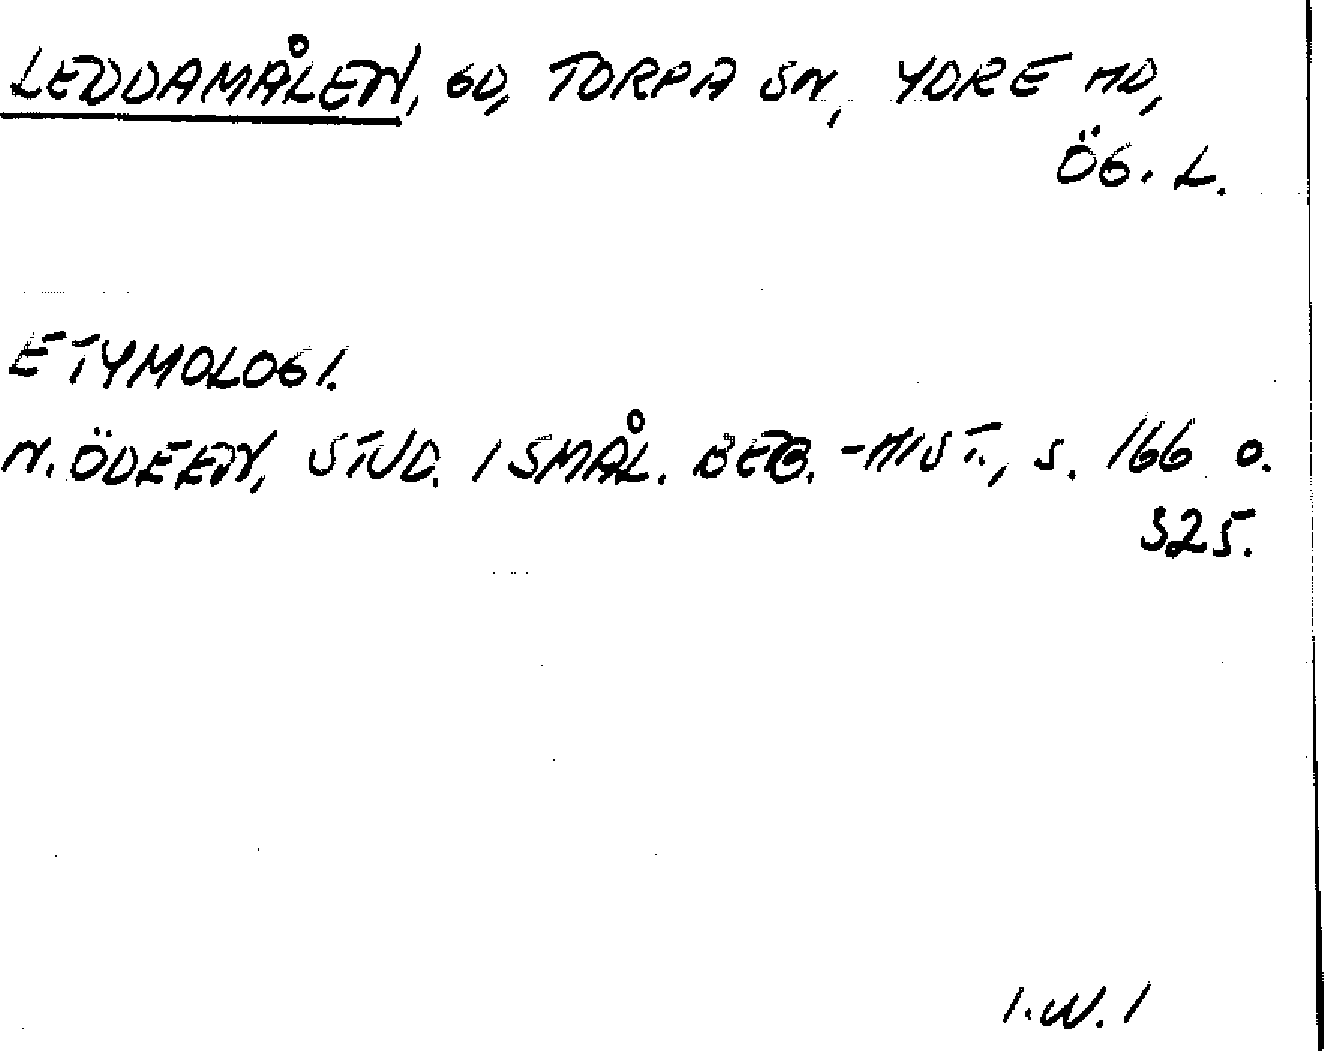 LEDDAMÅLEN, GD, TORPA SN, YDRE HD,
ÖG. L.
ETYMOLOGI.
N. ÖDEEN, STUD. I SMÅL. BEB.-HIST., S. 166 O.
325.
I.W. 1